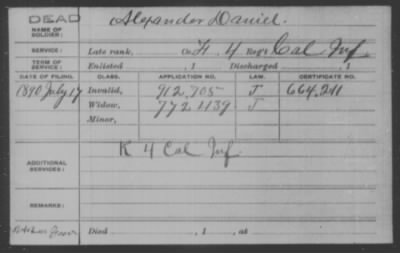 DEAD
NAME OF SOLDIER: Alexander Daniel.
SERVICE: Late rank, Co. H, 4 Reg't Cal Inf
TERM OF SERVICE: Enlisted , 1 Discharged , 1
DATE OF FILING. CLASS. APPLICATION NO. LAW. CERTIFICATE NO.
1890 July 17 Invalid, 912.705 J 664.211
Widow, 772439 J
Minor,
ADDITIONAL SERVICES: K 4 Cal Inf.
REMARKS:
Died , 1 , at